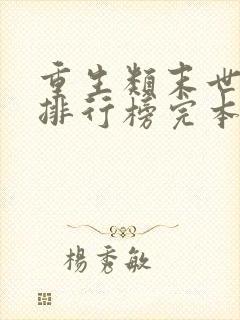 重生類末世
排行榜完本
楊秀敏